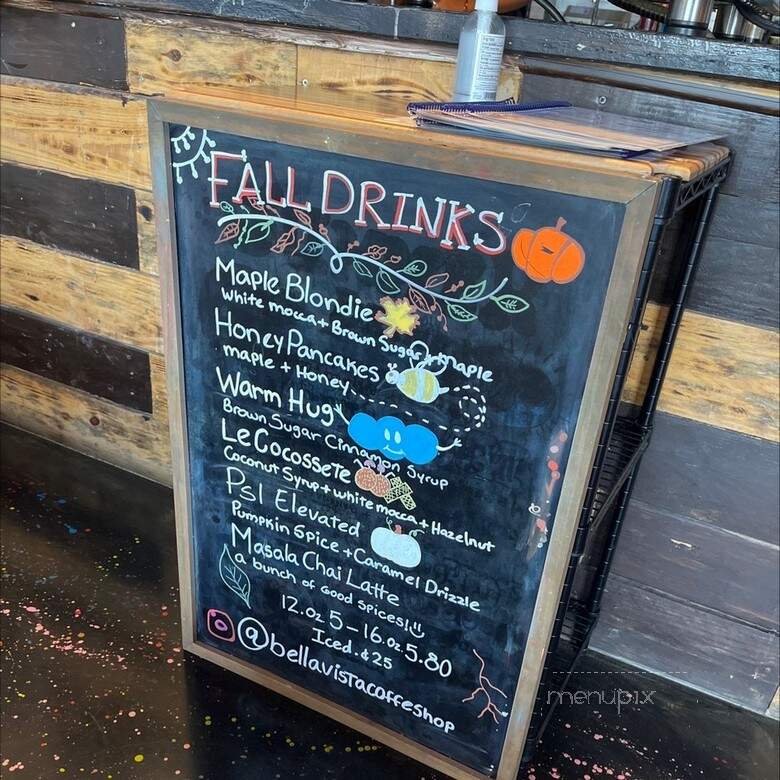 FALL DRINKS
Maple Blondie
White mocca + Brown Sugar + maple
Honey Pancakes
maple + Honey
Warm Hug
Brown Sugar Cinnamon Syrup
Le Cocossete
Coconut Syrup + white mocca + Hazelnut
Psl Elevated
Pumpkin Spice + Caramel Drizzle
Masala Chai Latte
a bunch of Good Spices!
12.oz 5 - 16.oz 5.80
Iced .¢25
@bellavistacoffeshop
menupix